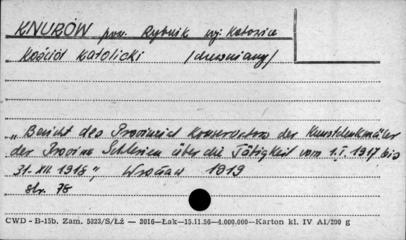 KNURÓW pow. Rybnik woj. Katowice
Kościół Katolicki /drewniany/
„Bericht des Provinzial Konservators der Kunstdenkmäler
der Provinz Schlesien über die Tätigkeit vom 1.I.1917 bis
31.XII 1918" Wrocław 1919
str. 78
CWD - B-15b, Zam. 5323/S/Łż — 2016—Łak—15.11.56—4.000.000—Karton kl. IV A1/200 g